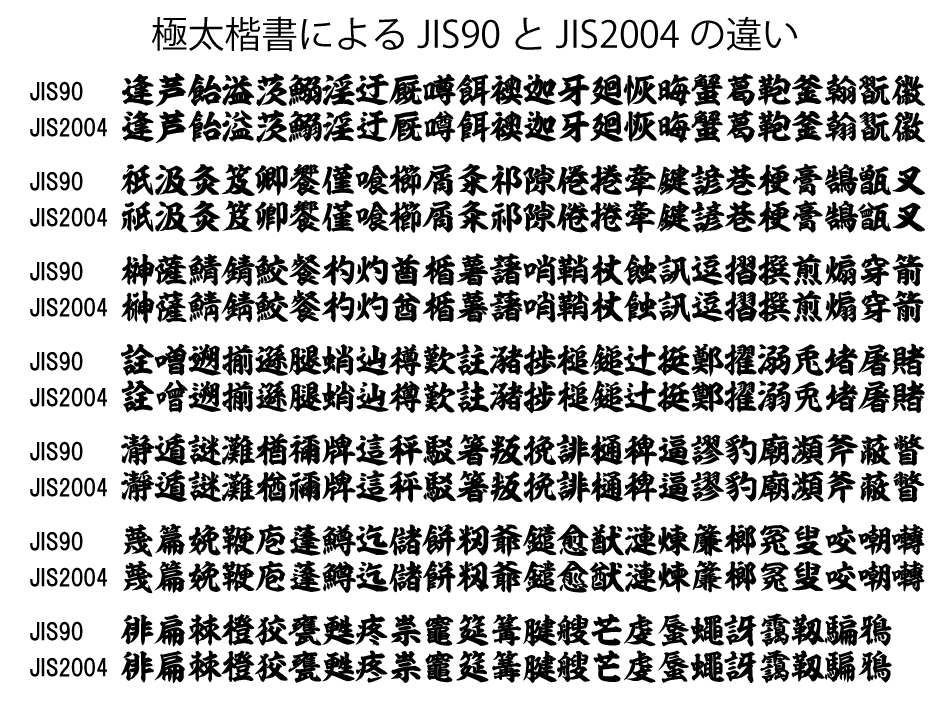 極太楷書による JIS90 と JIS2004 の違い
JIS90 逢芦飴溢茨鰯淫迂厩噂餌襖迦牙廻恢晦蟹葛鞄釜翰翫徽
JIS2004 逢芦飴溢茨鰯淫迂厩噂餌襖迦牙廻恢晦蟹葛鞄釜翰翫徽
JIS90 祇汲灸笈卿饗僅喰櫛屑粂祁隙倦捲牽鍵諺巷梗膏鵠甑叉
JIS2004 祇汲灸笈卿饗僅喰櫛屑粂祁隙倦捲牽鍵諺巷梗膏鵠甑叉
JIS90 榊薩鯖錆鮫餐杓灼酋楯薯藷哨鞘杖蝕訊逗摺撰煎煽穿箭
JIS2004 榊薩鯖錆鮫餐杓灼酋楯薯藷哨鞘杖蝕訊逗摺撰煎煽穿箭
JIS90 詮噌遡揃遜腿蛸辿樽歎註瀦捗槌鎚辻挺鄭擢溺兎堵屠賭
JIS2004 詮噌遡揃遜腿蛸辿樽歎註瀦捗槌鎚辻挺鄭擢溺兎堵屠賭
JIS90 瀞遁謎灘楢禰牌這秤駁箸叛挽誹樋稗逼謬豹廟瀕斧蔽瞥
JIS2004 瀞遁謎灘楢禰牌這秤駁箸叛挽誹樋稗逼謬豹廟瀕斧蔽瞥
JIS90 蔑篇娩鞭庖蓬鱒迄儲餅籾爺鑓愈猷漣煉簾榔冤叟咬嘲囀
JIS2004 蔑篇娩鞭庖蓬鱒迄儲餅籾爺鑓愈猷漣煉簾榔冤叟咬嘲囀
JIS90 徘扁棘橙狡甕甦疼祟竈筵篝腱艘芒虔蜃蠅訝靄靱騙鴉
JIS2004 徘扁棘橙狡甕甦疼祟竈筵篝腱艘芒虔蜃蠅訝靄靱騙鴉